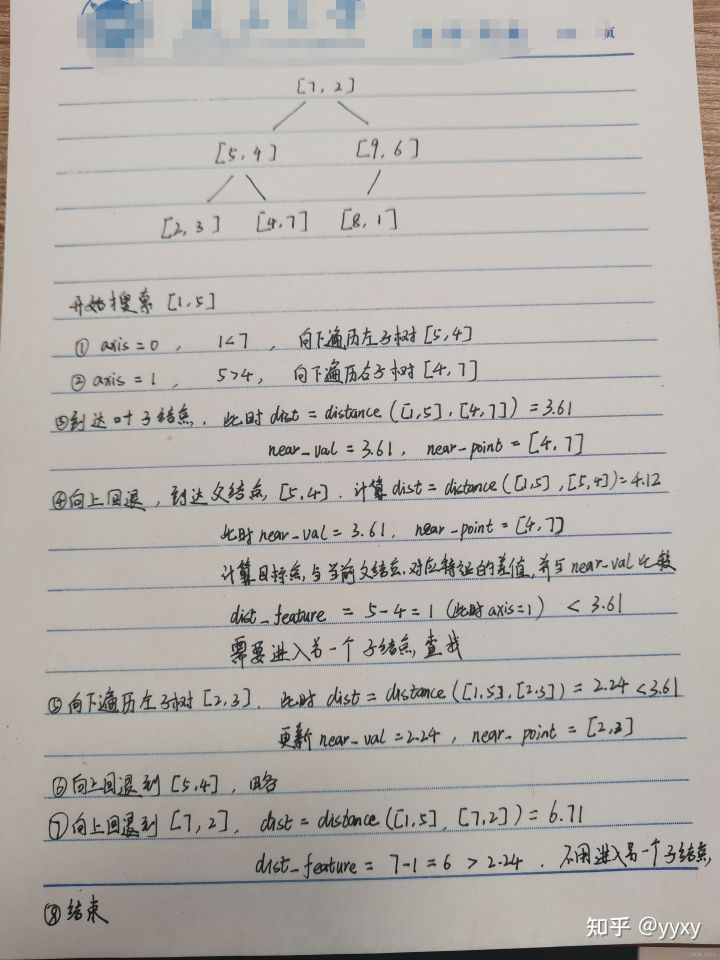 页
[7,2]
[5,4] [9,6]
[2,3] [4,7] [8,1]
开始搜索 [1,5]
① axis=0, 1<7, 向下遍历左子树 [5,4]
② axis=1, 5>4, 向下遍历右子树 [4,7]
③到达叶子结点, 此时 dist = distance([1,5],[4,7]) = 3.61
near_val = 3.61, near-point = [4,7]
④向上回退, 到达父结点 [5,4]. 计算 dist = distance([1,5],[5,4])=4.12
此时 near_val = 3.61, near_point = [4,7]
计算目标点与当前父结点对应特征的差值,并与 near_val 比较
dist_feature = 5-4=1 (此时axis=1) < 3.61
需要进入另一个子结点查找
⑤向下遍历左子树 [2,3]. 此时 dist = distance([1,5],[2,3]) = 2.24 <3.61
更新 near_val=2.24, near_point = [2,3]
⑥向上回退到 [5,4], 略
⑦向上回退到 [7,2], dist = distance([1,5],[7,2]) = 6.71
dist_feature = 7-1=6 > 2.24. 不用进入另一个子结点
⑧结束
知乎 @yyxy